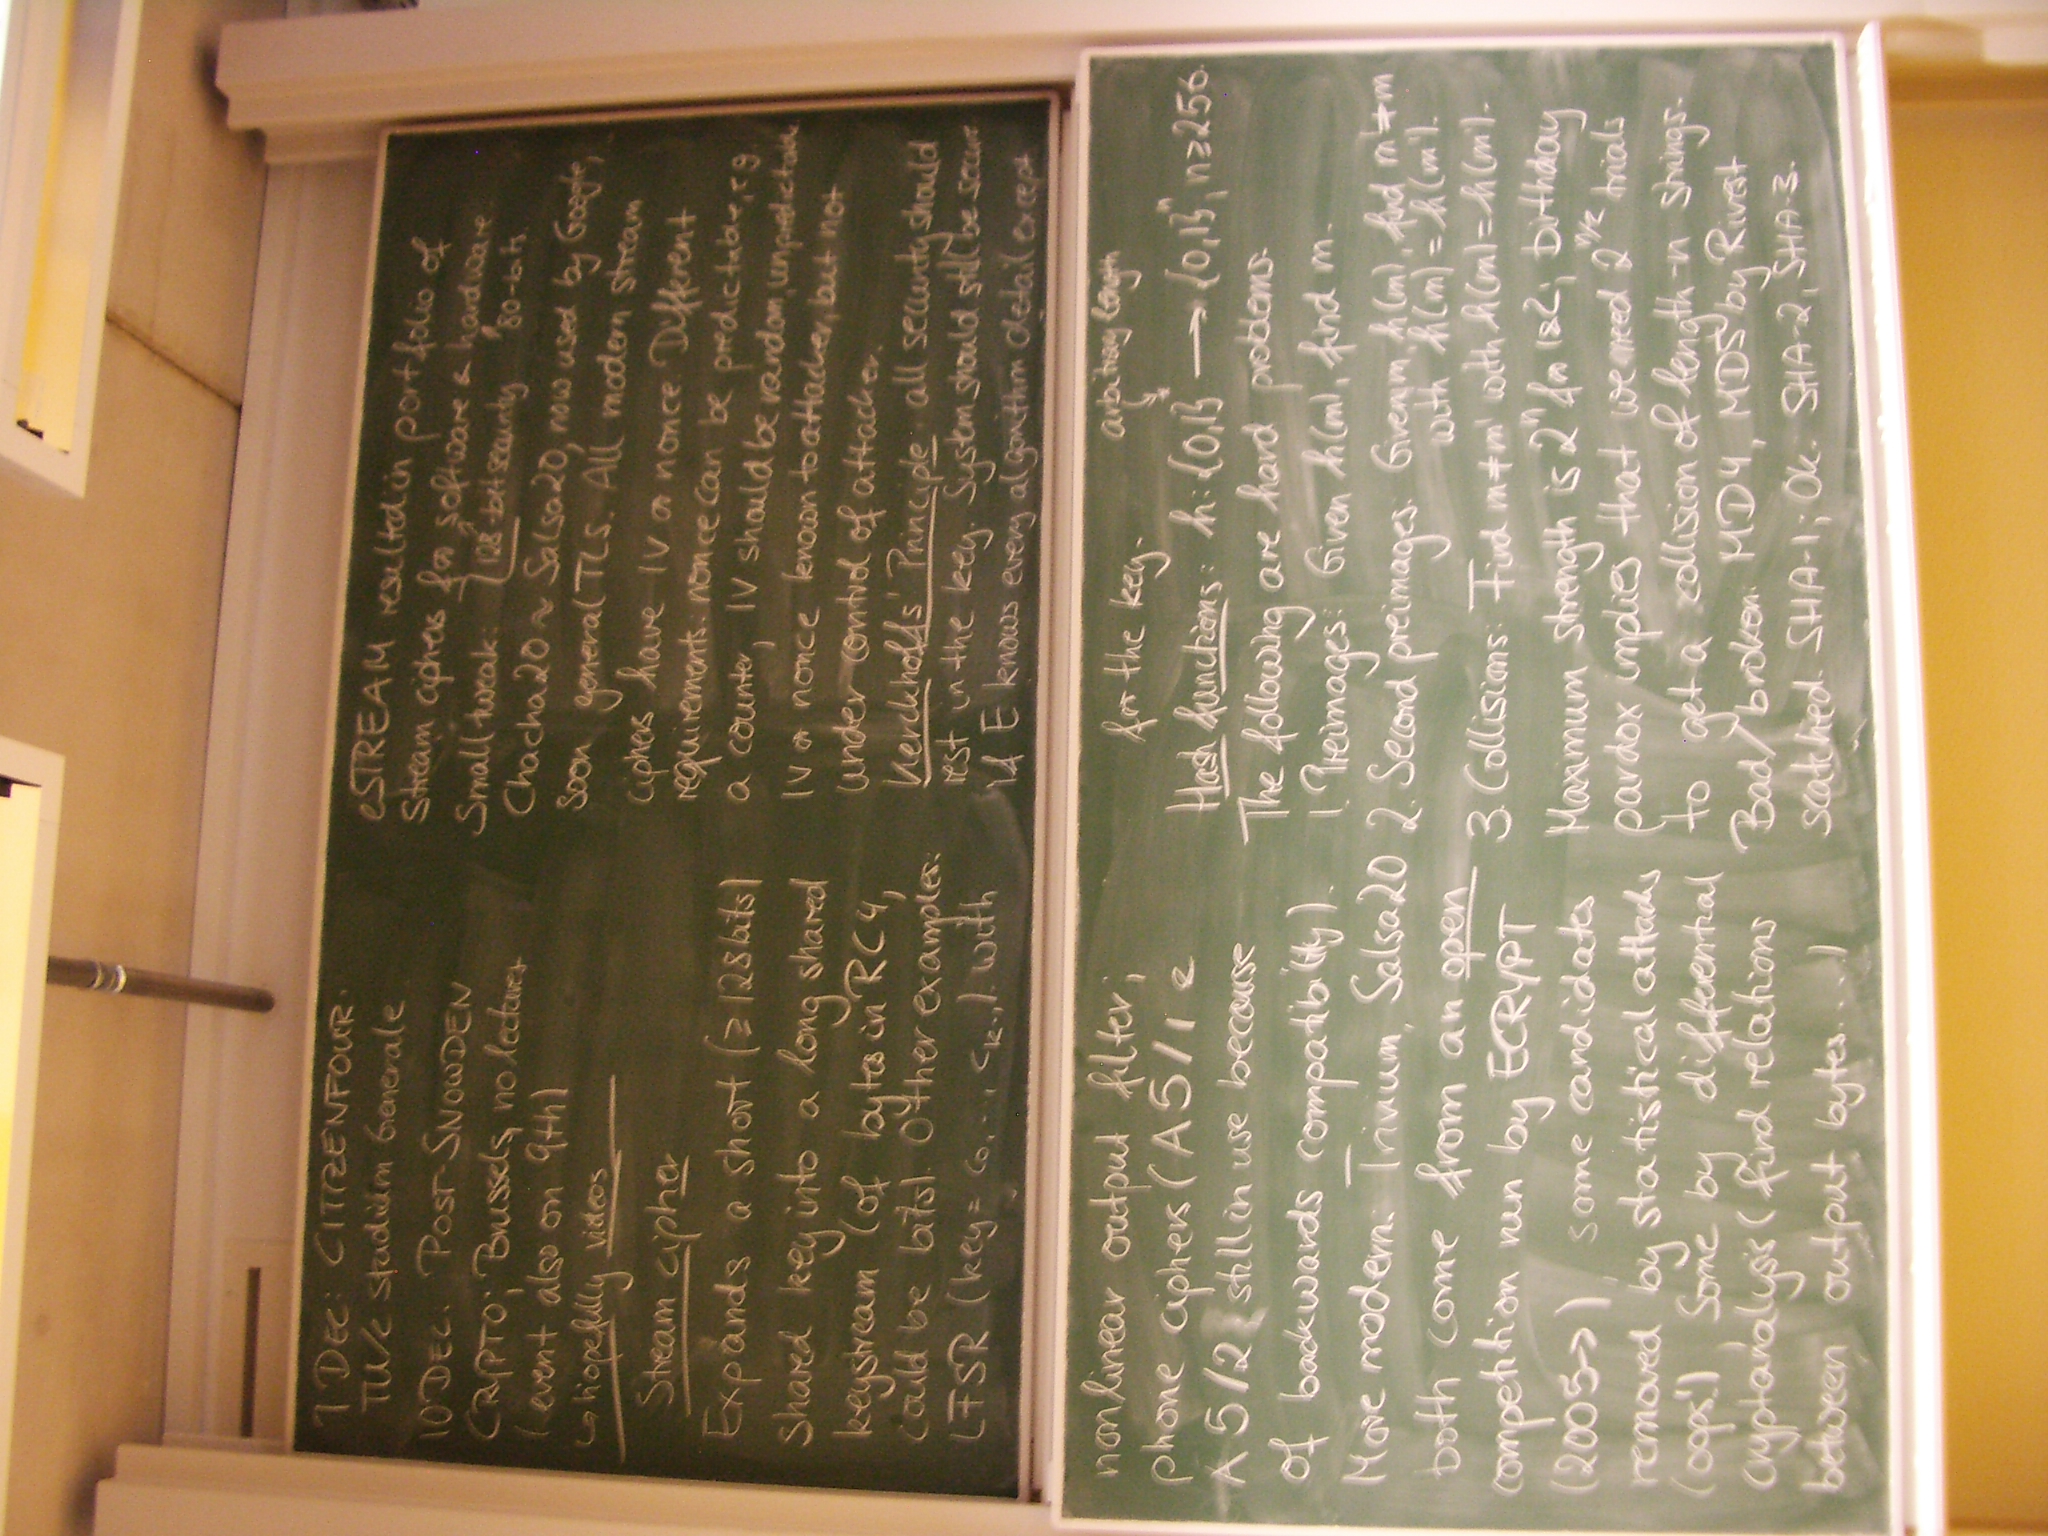 7 DEC: CITIZENFOUR.
TU/e studium Generale
10 DEC. POST-SNOWDEN
CRPTO; Brussels, no lecture
(event also on 9th)
↳ hopefully videos
Stream cipher
Expands a short (≥ 128 bits)
shared key into a long shared
keystream (of bytes in RC4,
could be bits). Other examples:
LFSR (key = c0, ..., ck-1) with
eSTREAM resulted in portfolio of
stream ciphers for software & hardware
Small tweak: 128-bit security, 80-bits.
Chacha20 ~ Salsa20, now used by Google,
soon general TLS. All modern stream
ciphers have IV or nonce Different
requirements: nonce can be predictable, e.g.
a counter, IV should be random, unpredictable
IV or nonce known to attacker, but not
under control of attacker.
Kerckhoffs' Principle: all security should
rest in the key. System should still be secure
if E knows every algorithm detail except
nonlinear output filter;
phone ciphers (A5/1 &
A5/2 still in use because
of backwards compatibility).
More modern: Trivium, Salsa20
both come from an open
competition run by ECRYPT
(2005->) some candidates
removed by statistical attacks
(oops!) Some by differential
cryptanalysis (find relations
between output bytes...)
for the key.
arbitrary length
Hash functions: h: {0,1}* → {0,1}^n, n≥256.
The following are hard problems:
1. Preimages: Given h(m), find m.
2. Second preimages: Given m, h(m), find m'≠m
with h(m) = h(m').
3. Collisions: Find m≠m' with h(m) = h(m').
Maximum strength is 2^n for 1&2; birthday
pardox implies that we need 2^n/2 trials
to get a collision of length-n strings.
Bad/broken: MD4, MD5 by Rivest
scratched: SHA-1; Ok: SHA-2, SHA-3.